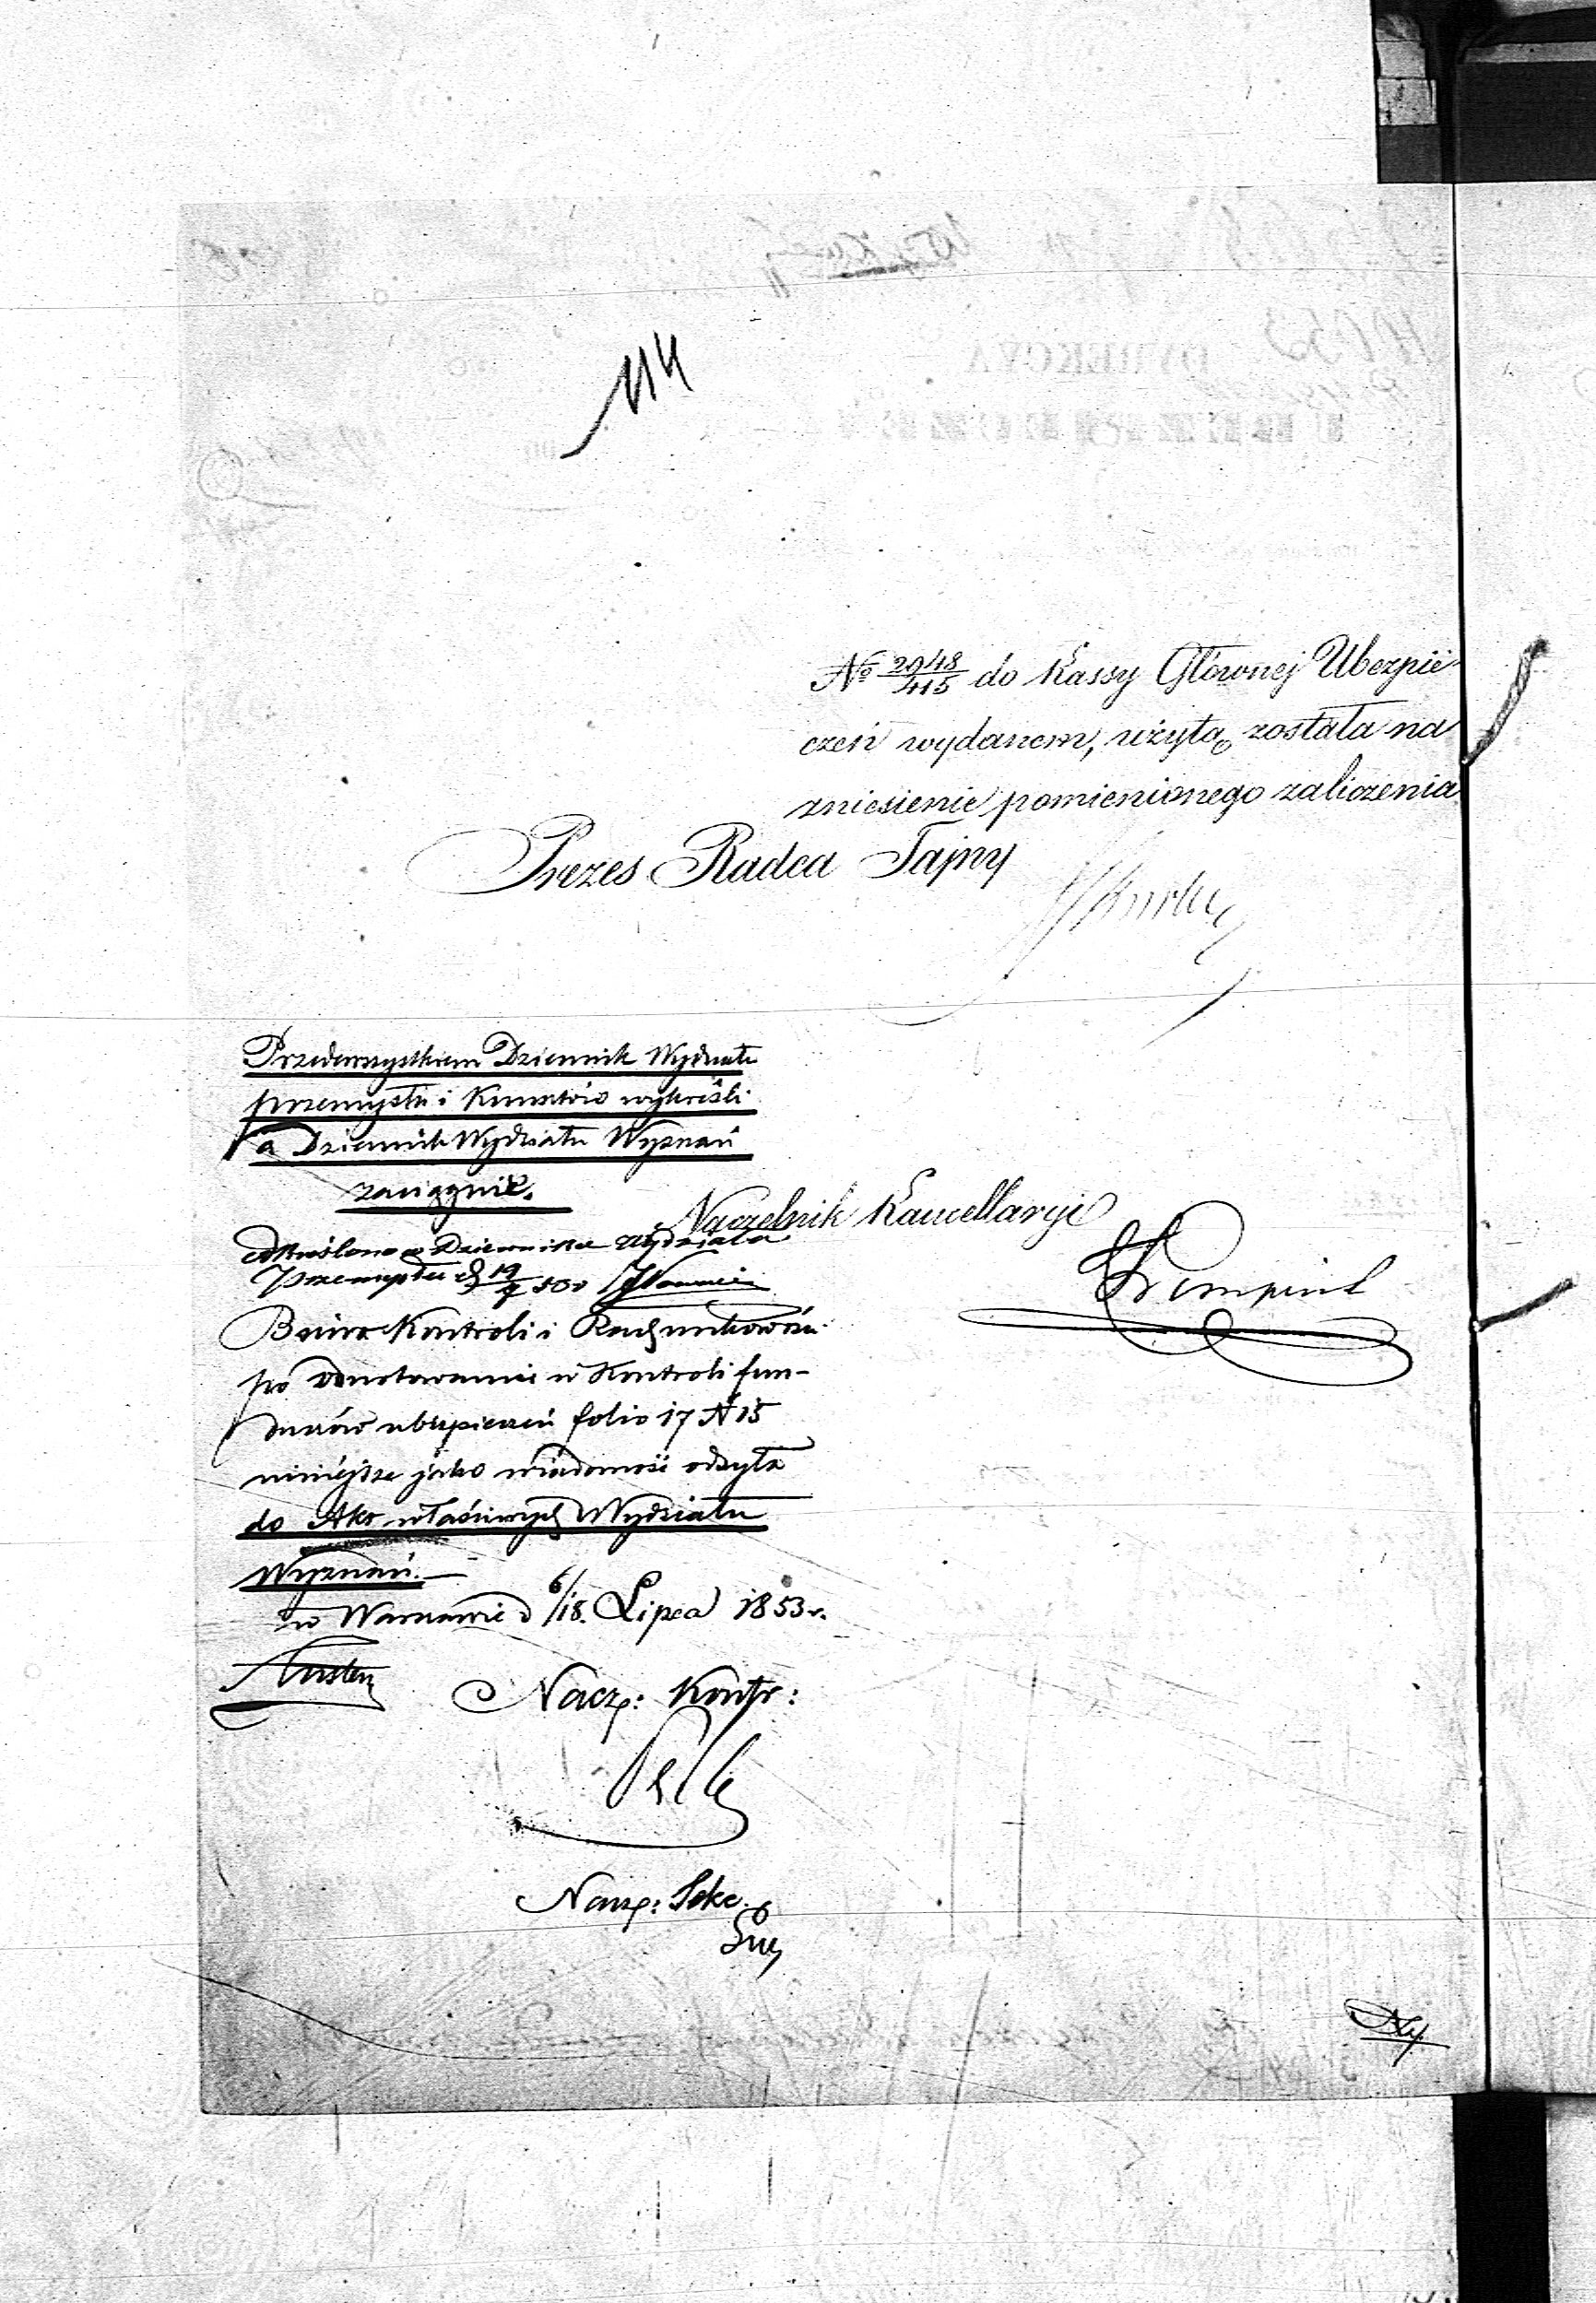 114
№ 2948/415 do Kassy Głównej Ubezpie-
czeń wydanem, użytą została na
zniesienie pomienionego zaliczenia
Prezes Radca Tajny
Przedewszystkiem Dziennik Wydziału
przemysłu i Kunsztów wykreśli
a Dziennik Wydziału Wyznań
zaciągnie.
Naczelnik Kancellaryi
w Dzienniku Wydziału
Przemysłu d 19/7 53 r
Biuro Kontroli i Rachunkowości
po odnotowaniu w Kontroli fun-
duszów ubezpieczeń folio 17 N 15
niniejsze jako wiadomość odsyła
do Akt właściwych Wydziału
Wyznań.—
w Warszawie d 6/18. Lipca 1853 r.
Nacz: Kontr:
Nacz: Sekc.